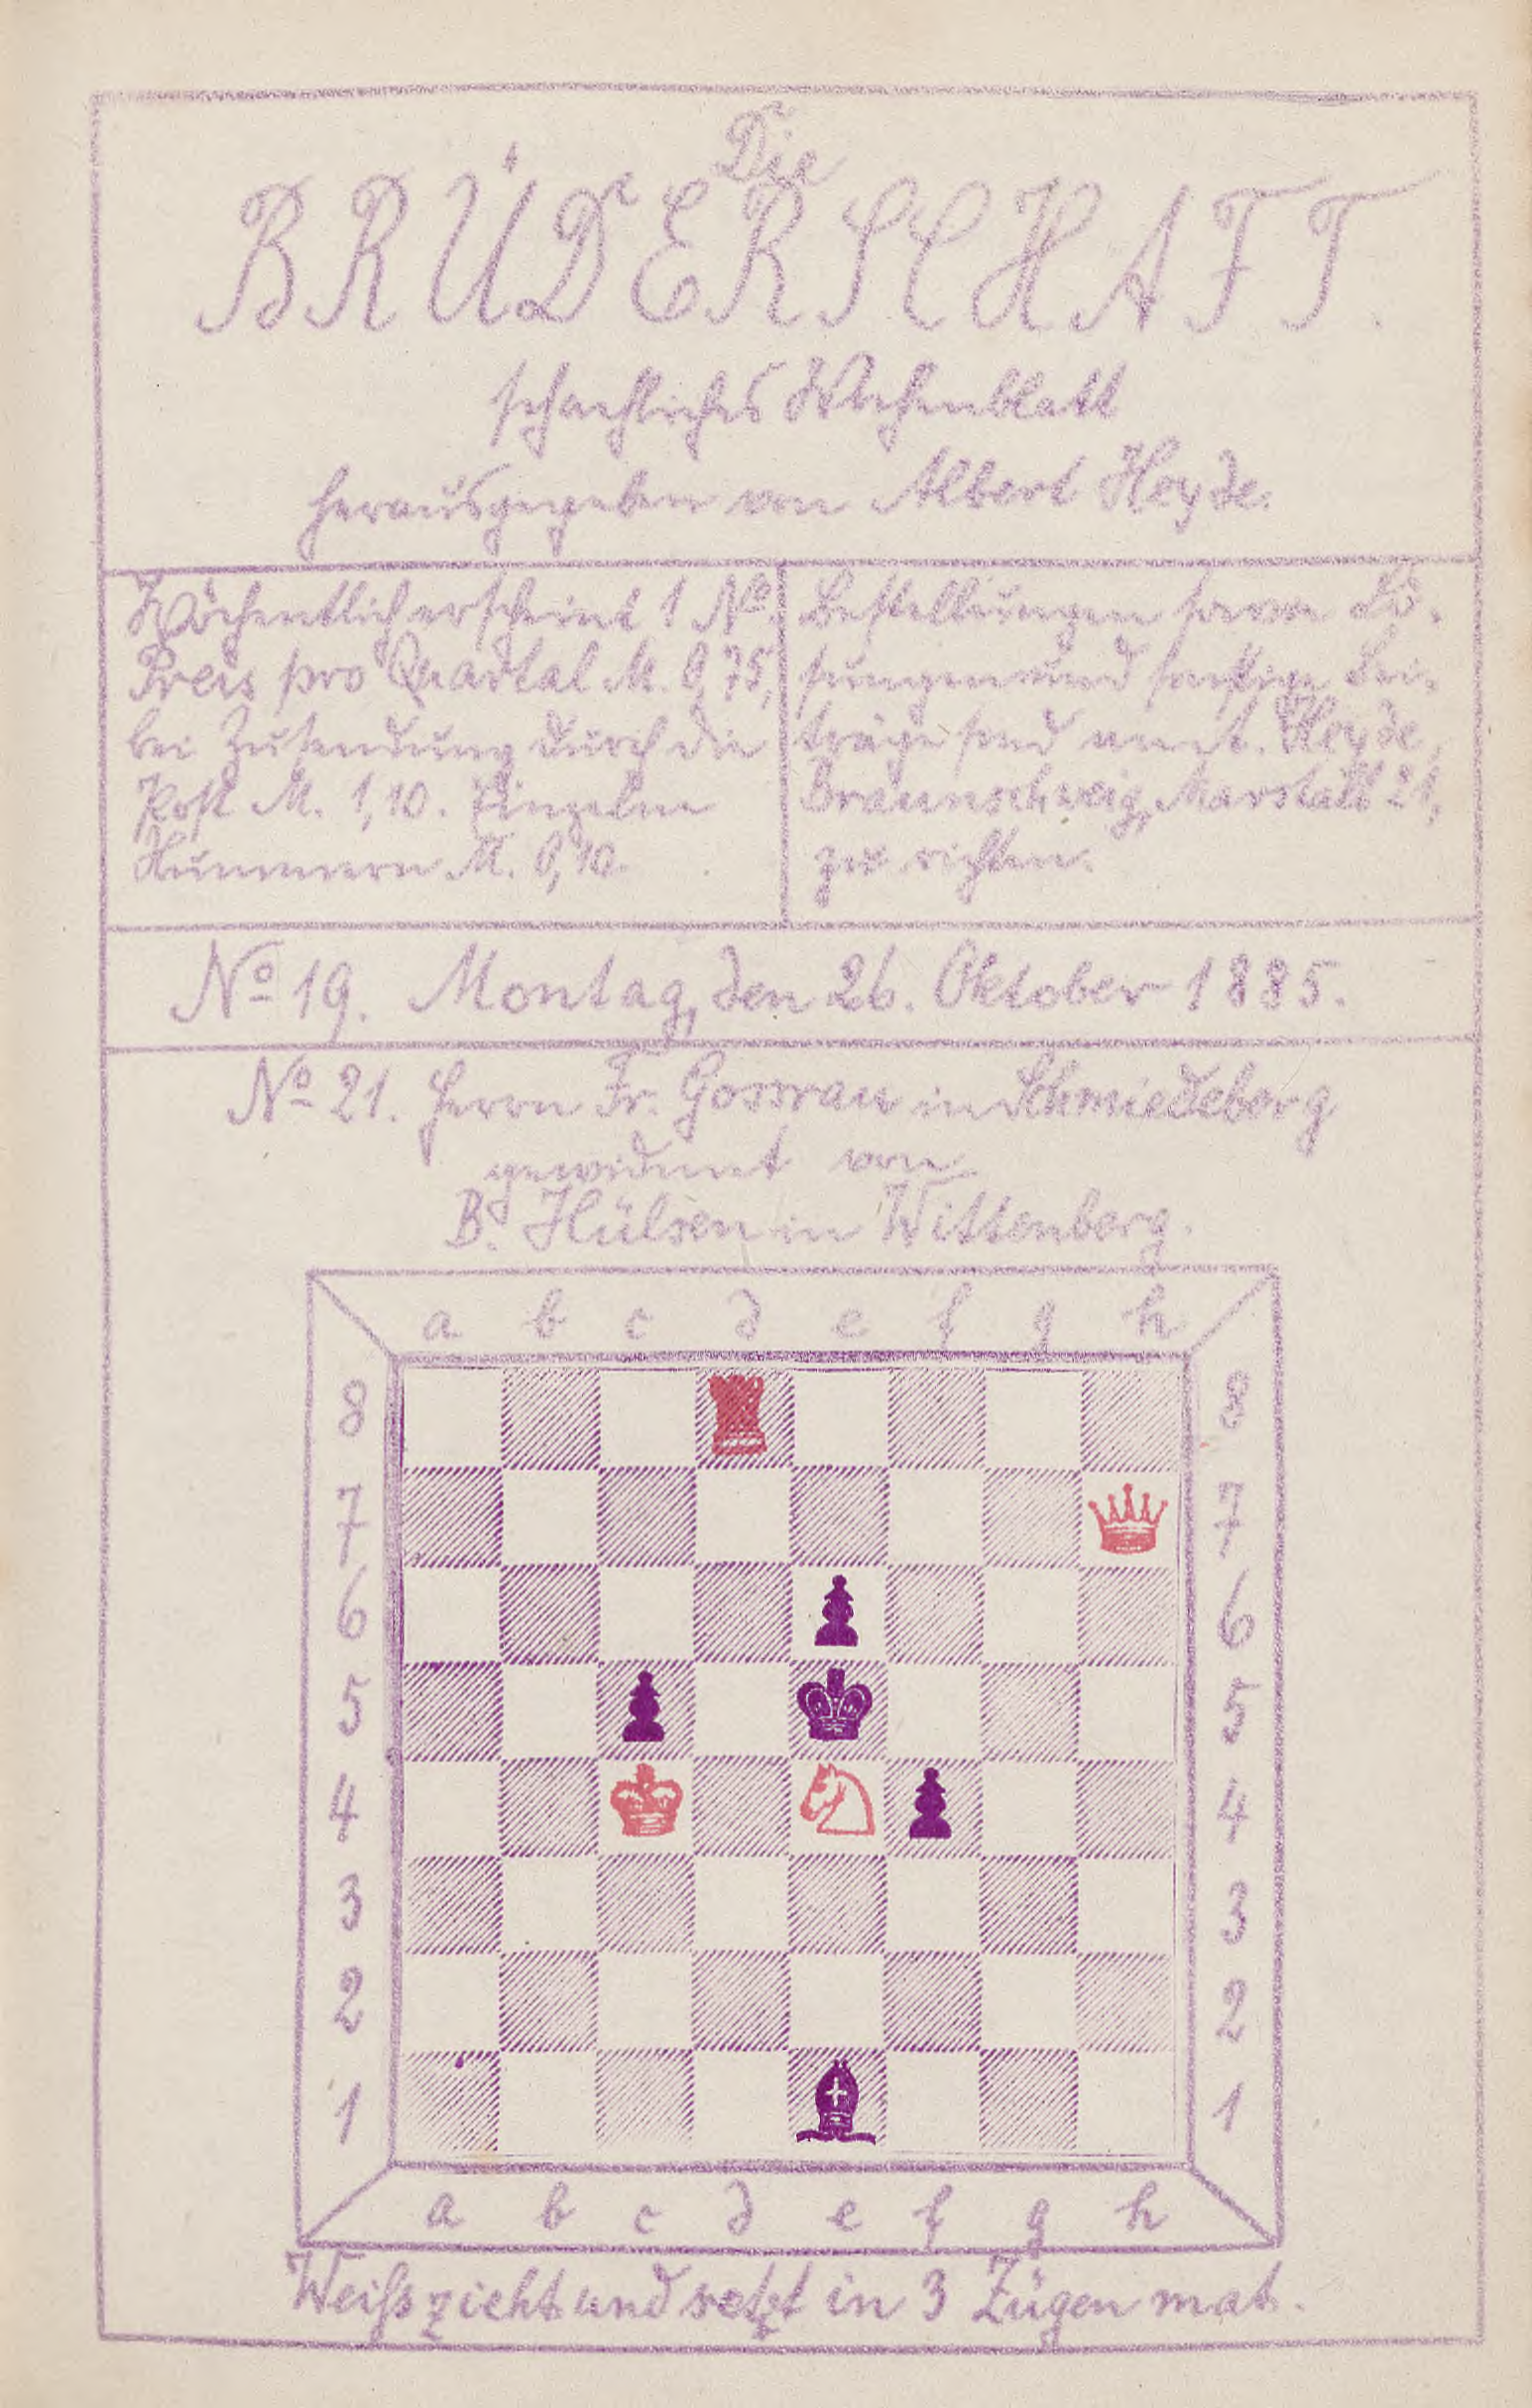 Die
BRÜDERSCHAFT.
schachliches Wochenblatt
herausgegeben von Albert Heyde.
Wöchentlich erscheint 1 No.
Preis pro Quartal M. 0,75,
bei Zusendung durch die
Post M. 1,10. Einzelne
Nummern M. 0,10.
Bestellungen sowie Lö-
sungen und sonstige Bei-
träge sind an A. Heyde,
Braunschweig, Marstall 21,
zu richten.
No 19. Montag, den 26. Oktober 1885.
No 21. Herrn Fr. Gossrau in Schmiedeberg
gewidmet von
B. Hülsen in Wittenberg.
a b c d e f g h
8 8
7 7
6 6
5 5
4 4
3 3
2 2
1 1
a b c d e f g h
Weiß zieht und setzt in 3 Zügen mat.